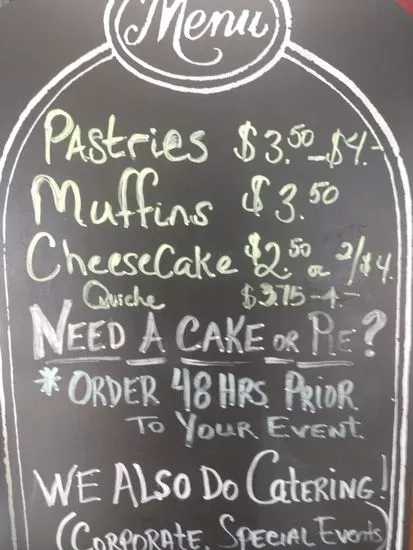 Menu
PAstries $3.50-$4.-
Muffins $3.50
CheeseCake $2.50 or 2/$4.
Quiche $3.75-4.-
NEED A CAKE OR PIE?
* ORDER 48 HRS PRIOR
TO YOUR EVENT.
WE ALSO DO CATERING!
(CORPORATE, SPECIAL EVENTS)